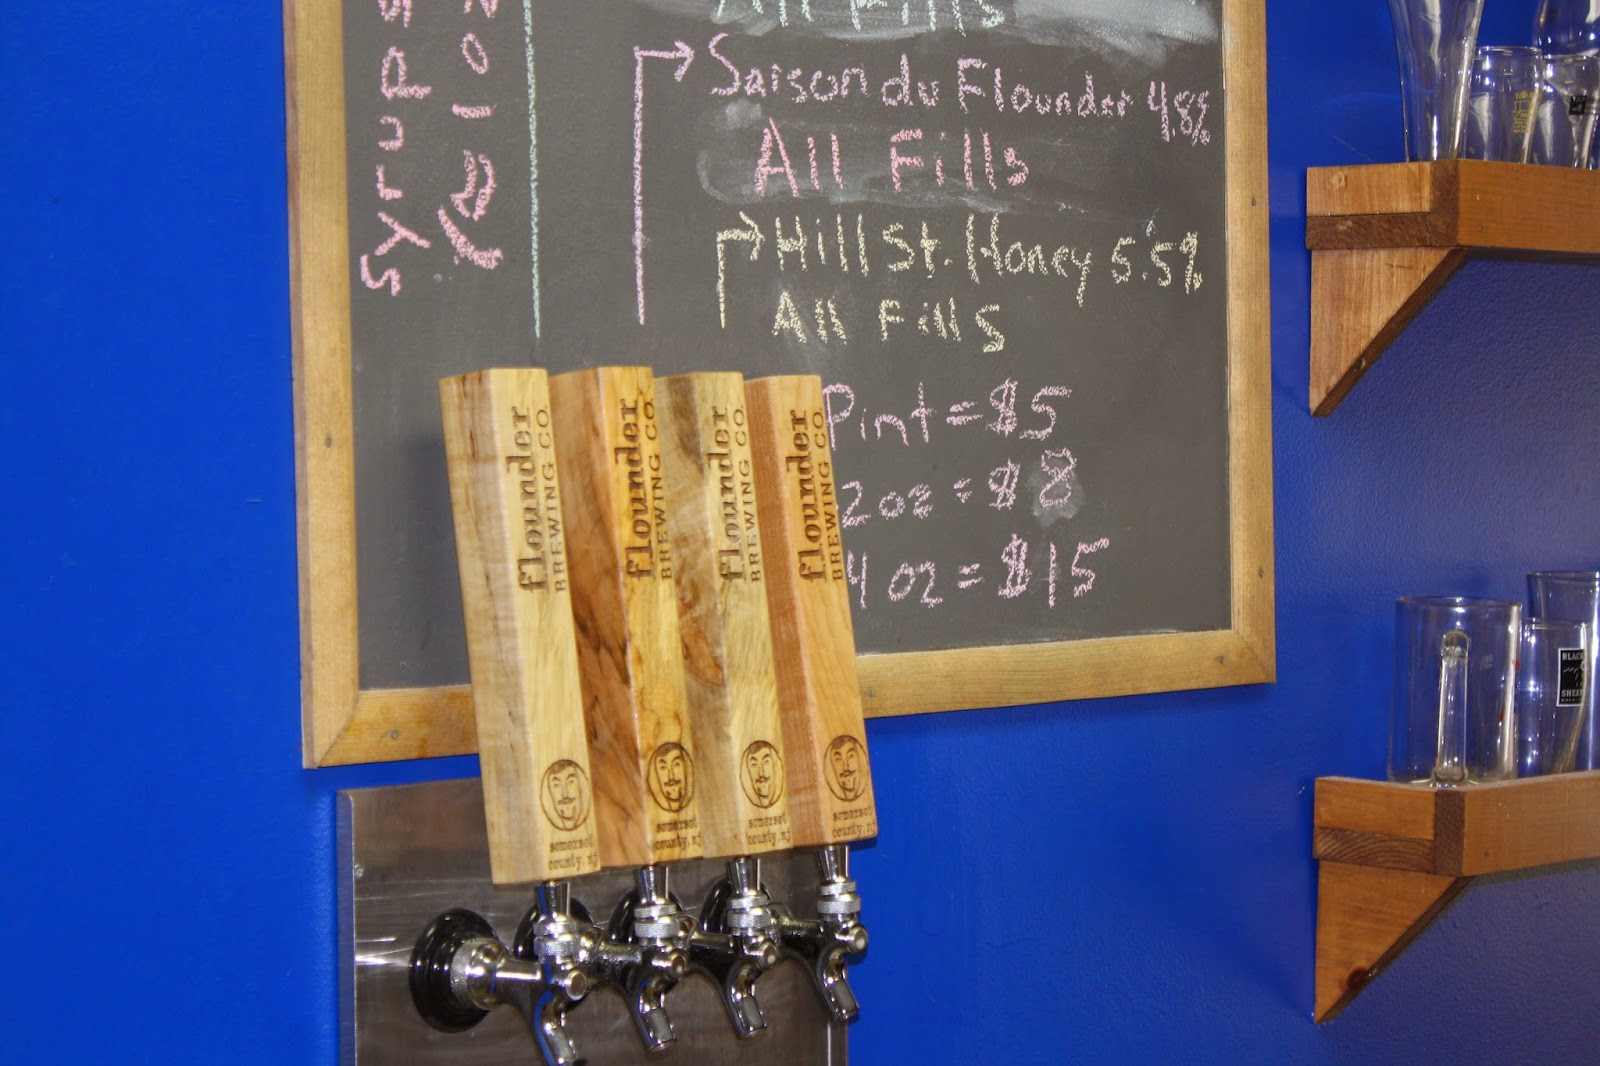 Syrups
All Fills
Saison du Flounder 4.8%
All Fills
Hill St. Honey 5.5%
All Fills
Pint = $5
2oz = $8
4oz = $15
flounder
BREWING CO.
somerset
county, nj
flounder
BREWING CO.
somerset
county, nj
flounder
BREWING CO.
somerset
county, nj
flounder
BREWING CO.
somerset
county, nj
BLACK
SHEEP